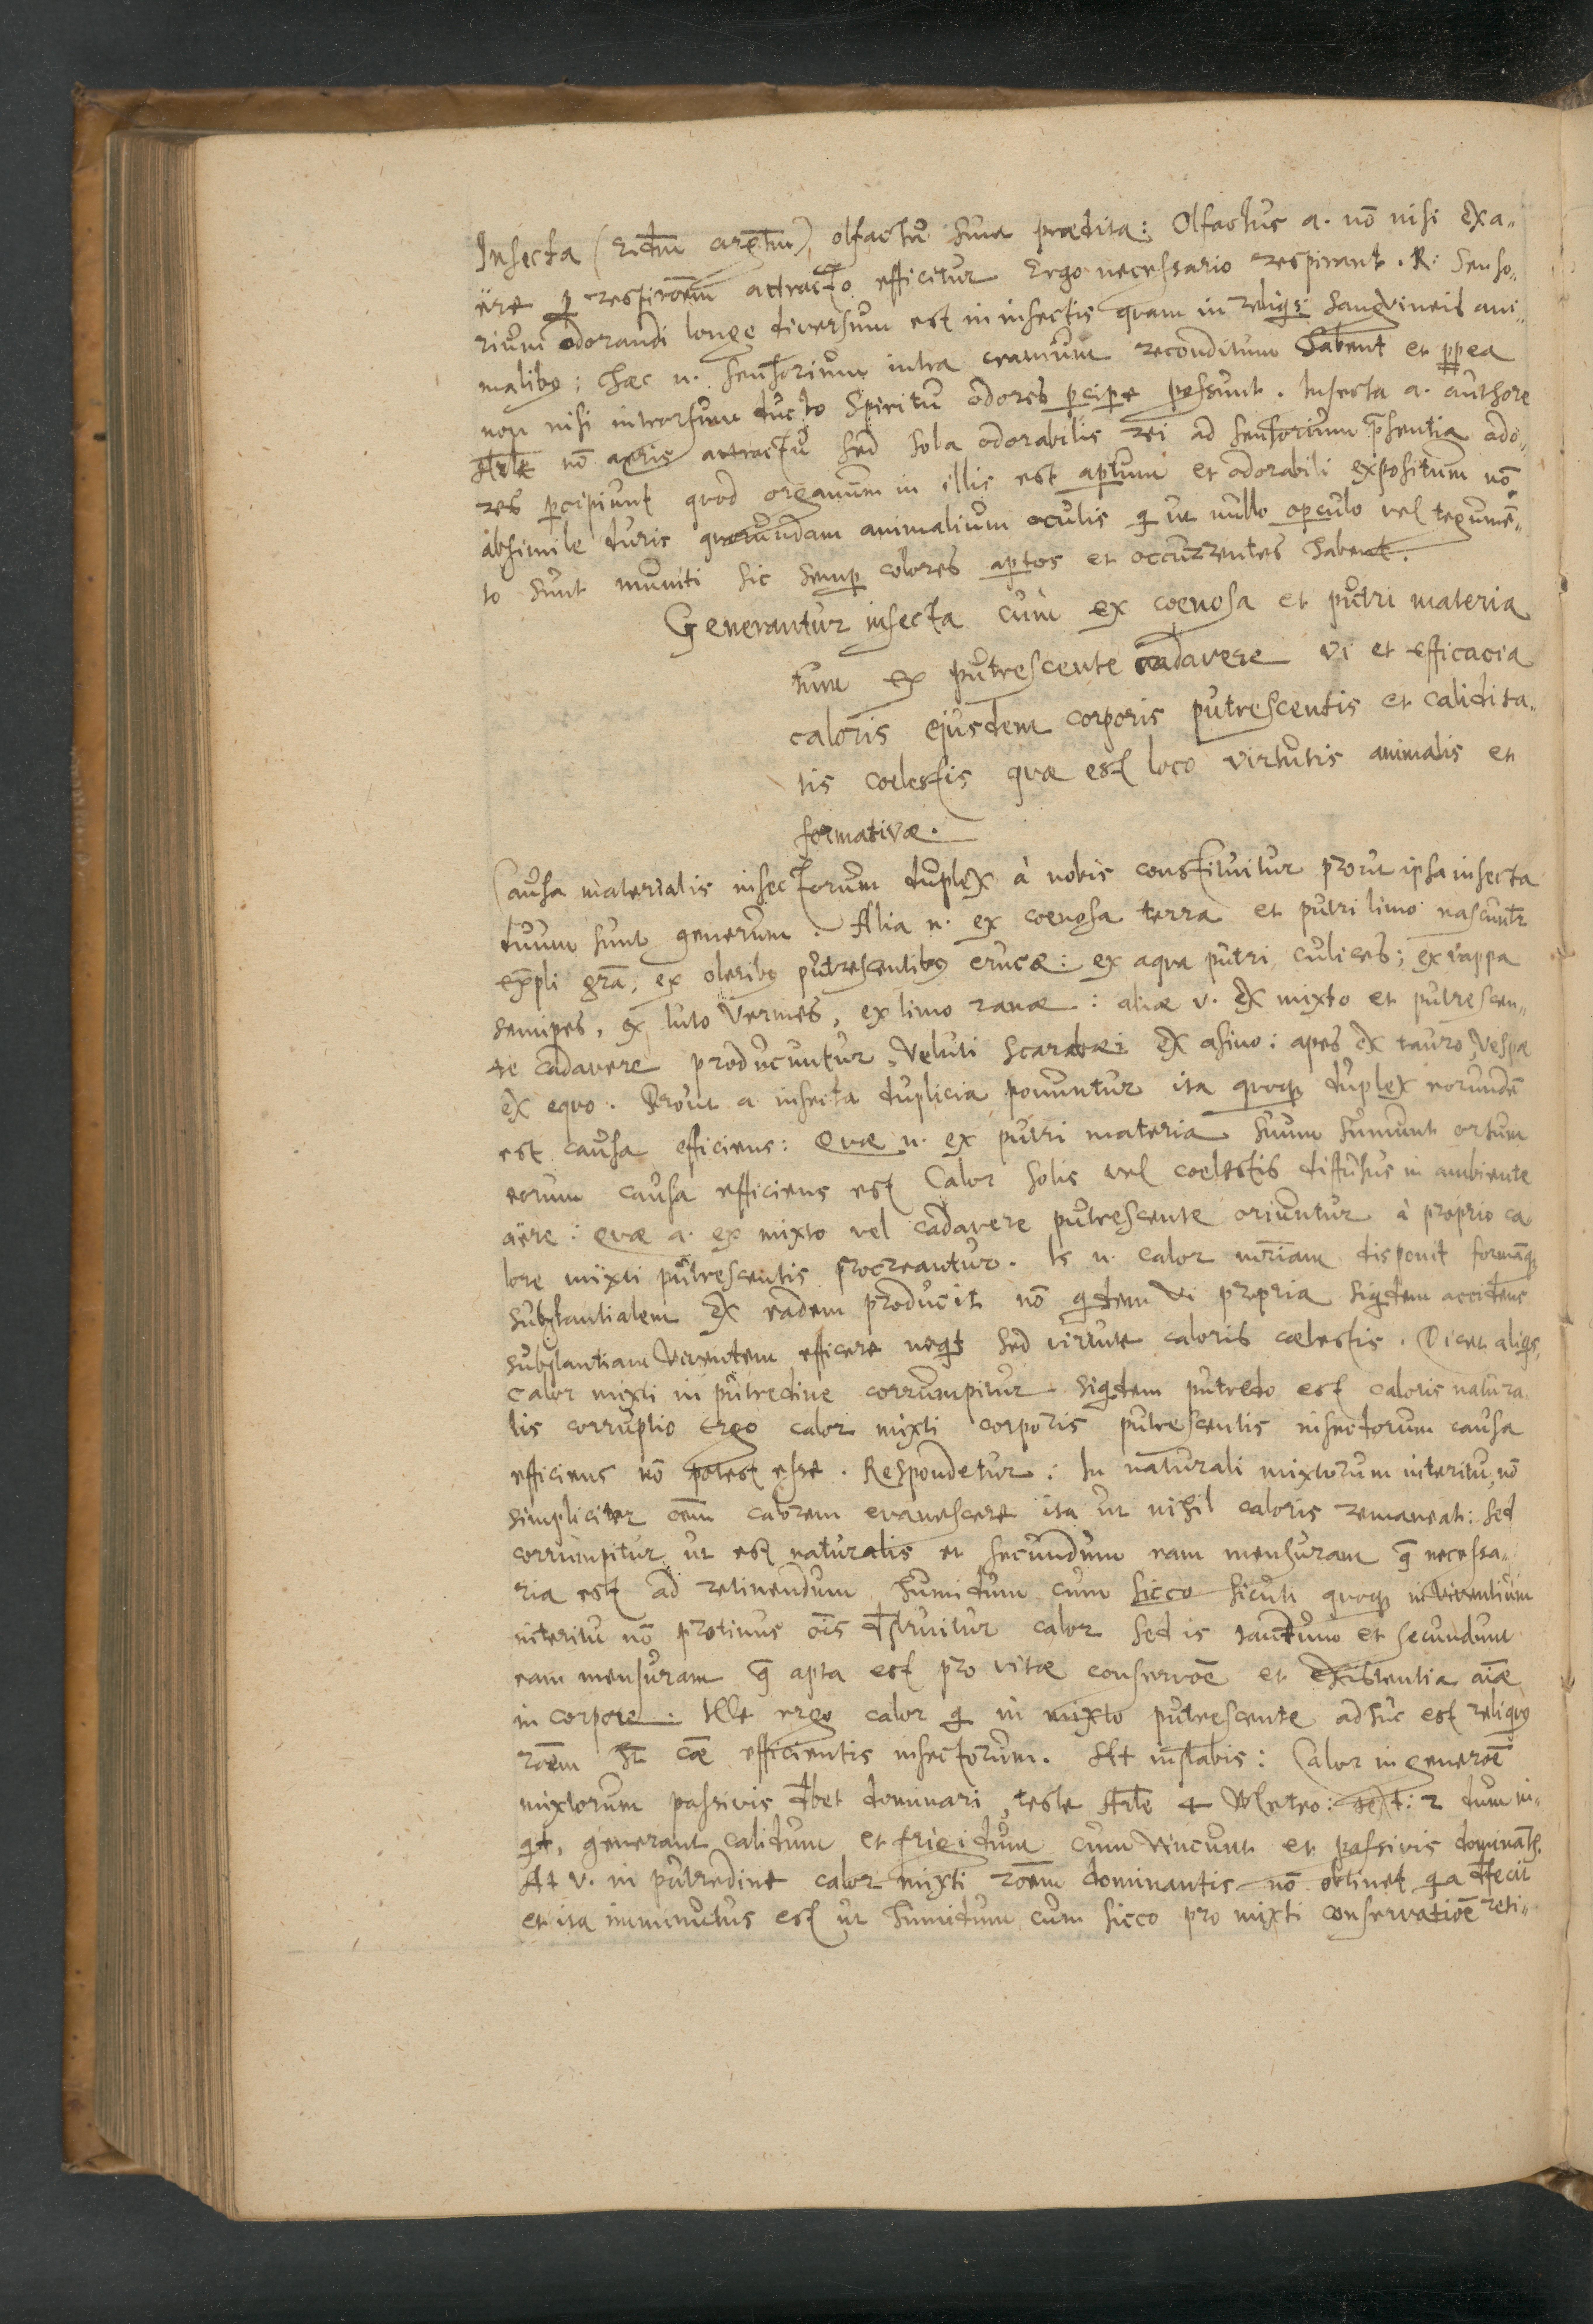 Insecta olfactu sunt prædita: Olfactus a. nō nisi ex a¬
ëre attracto efficitur Ergo necessario respirant. R: Senso¬
rium odorandi longe diversum est in insectis quam in reliqs sangvineis ani¬
malibꝰ; hæc n. sensorium intra cranium reconditum habent et
non nisi introrsum ducto spiritu odores ꝑcipe possunt. Insecta a. authore
nō aeris attractu sed sola odorabilis rei ad sensorium p̄sentia odo¬
res ꝑcipiunt quod organum in illis est aꝑtum et odorabili expositum nō
absimile duris quorundam animalium oculis q ut nullo oꝑculo vel tegumē¬
to sunt muniti sic semꝑ colores aꝑtos et occurrentes habent.
Generantur insecta cum ex coenosa et putri materia
tum ex putrescente cadavere vi et efficacia
caloris ejusdem corporis putrescentis et calidita¬
tis coelestis quæ est loco virtutis animalis et
formativæ.
Causa materialis insectorum duplex à nobis constituitur prout ipsa insecta
duum sunt generum. Alia n. ex coenosa terra et putri limo nascuntr
exēpli grā; ex oleribꝰ putrescentibꝰ erucæ: ex aqua putri culices; ex vappa
semipes, ex luto vermes, ex limo ranæ: aliæ v. ex mixto et putrescen¬
te cadavere producuntur, veluti scarabæi ex asino: apes ex tauro, vespæ
ex equo. Prout a insecta duplicia ponuntur ita quoqꝫ duplex eorundē
est causa efficiens: Quæ n. ex putri materia suum sumunt ortum
eorum causa efficiens est Calor solis vel coelestis diffusus in ambiente
aëre: quæ a. ex mixto vel cadavere putrescente oriuntur à proprio ca
lore mixti putrescentis procreantur. Is n. calor māriam disponit formāqꝫ
substantialem ex eadem producit nō qdem vi propria siqdem accidens
substantiam viventem efficere neqt sed virtute caloris cælestis. Dicet aliqs,
Calor mixti in putredine corrumpitur siqdem putredo est caloris natura
lis corruptio Ergo calor mixti corporis putrescentis insectorum causa
efficiens nō potest esse. Respondetur: In naturali mixtorum interitu, nō
simpliciter oēm calorem evanescere ita ut nihil caloris remaneat: sed
corrumpitur ut est naturalis et secundum eam mensuram q̄ necessa¬
ria est ad retinendum humidum cum sicco siculi quoqꝫ in viventium
interitu nō protinus oīs dstruitur calor sed is tantum et secundum
eam mensuram q̄ apta est pro vitæ conservōē et existentia aīæ
in corpore. Ille ergo calor q in mixto putrescente adhuc est reliquꝰ
rōēm hт cāæ efficientis insectorum. At instabis: Calor in generōē
mixtorum passivis dbet dominari, teste Arle 4 Meteo: text: 2 dum in¬
qt, generant calidum et frigidum cum vincunt et passivis dominātr.
At v. in putredine calor mixti rōēm dominantis nō obtinet qa dfecit
et ita imminutus est ut humidum cum sicco pro mixti conservatiōē reti¬